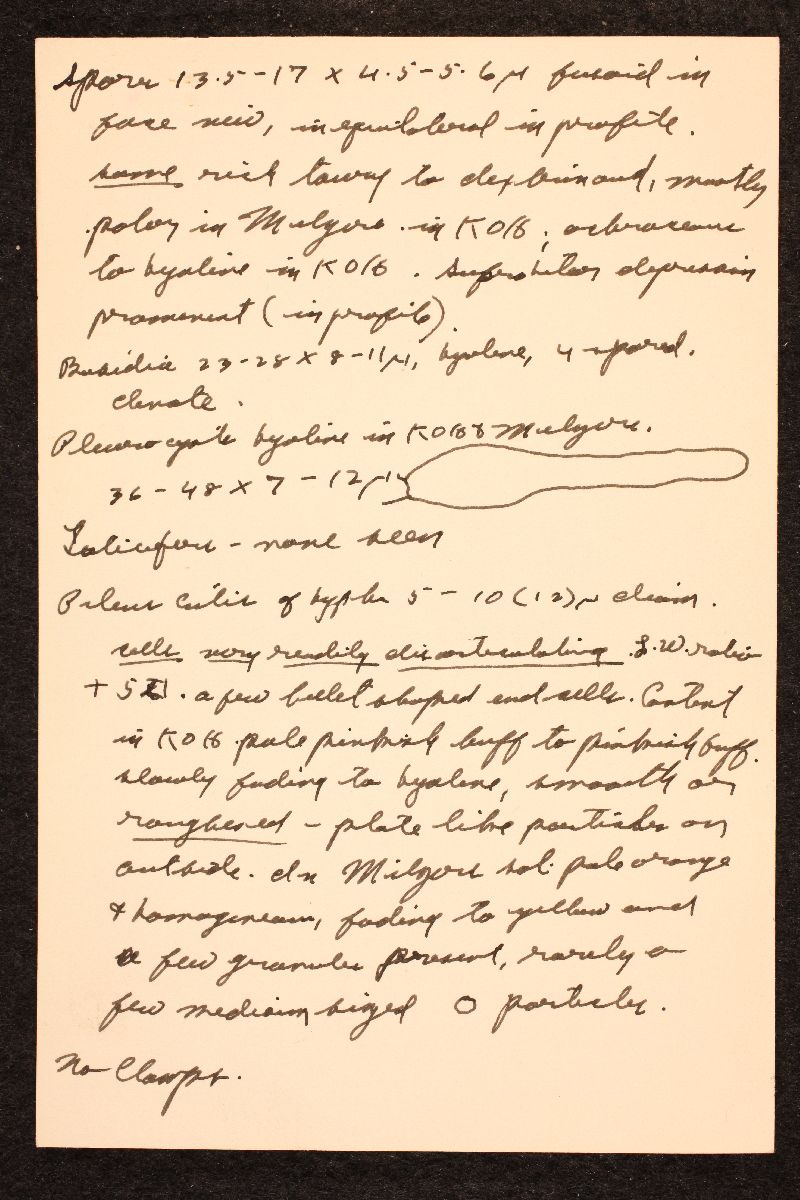 Spores 13.5-17 x 4.5-5.6 μ fusoid in
face view, inequilateral in profile.
some rich tawny to dextrinoid, mostly
paler in Melzers. in KOH, ochraceous
to hyaline in KOH. Suprahilar depression
prominent (in profile)
Basidia 23-28 x 8-11 μ, hyaline, 4 spored.
clavate.
Pleurocysts hyaline in KOH & Melzers.
36-48 x 7-12 μ
Laticifers - none seen
Pileus cutis of hypha 5-10 (12) μ diam.
cells very readily disarticulating L.W. ratio
+ 5 . a few bullet shaped end cells. Content
in KOH pale pinkish buff to pinkish buff.
slowly fading to hyaline, smooth or
roughened - plate like particles on
outside. In Melzers sol. pale orange
& homogeneous, fading to yellow and
a few granules present, rarely a
few medium sized O particles.
No Clamps.